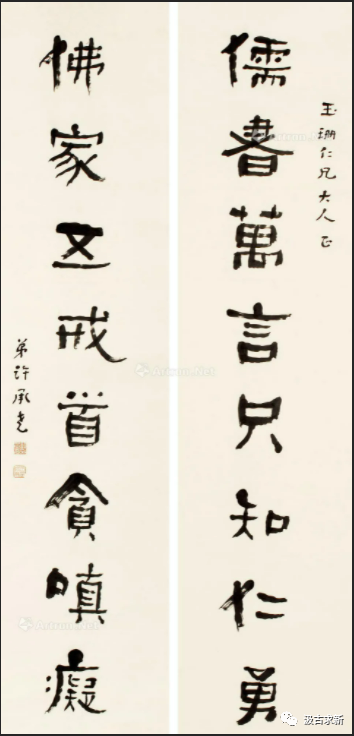 玉珊仁兄大人正
儒書萬言只知仁勇
佛家五戒首貪嗔癡
弟許承堯
Artron.Net
汲古求新